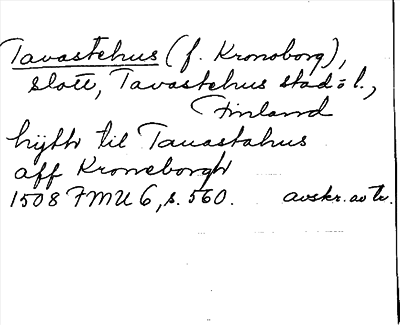 Tavastehus (f. Kronoborg),
slott, Tavastehus stad o l.,
Finland
hijth til Tauastahus
aff Kroneborgh
1508 FMU 6, s. 560. avskr. av tr.